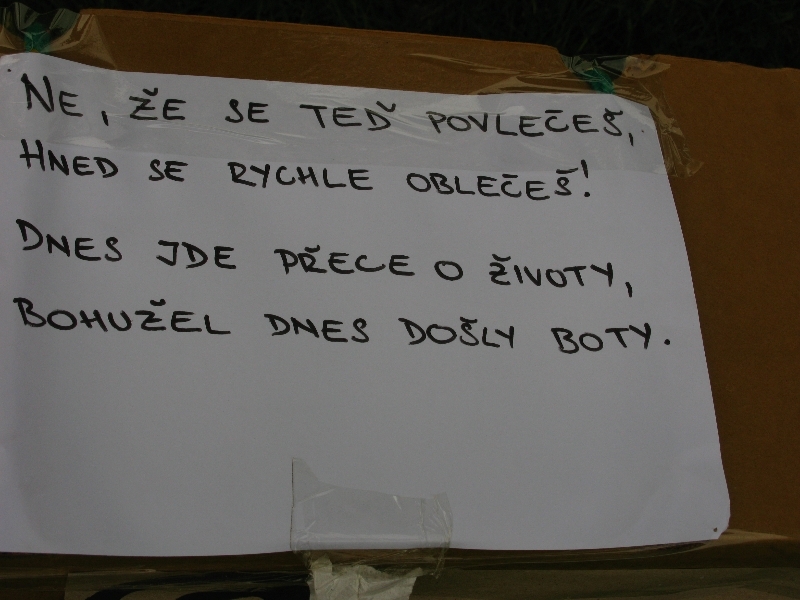 NE, ŽE SE TEĎ POVLEČEŠ,
HNED SE RYCHLE OBLEČEŠ!
DNES JDE PŘECE O ŽIVOTY,
BOHUŽEL DNES DOŠLY BOTY.